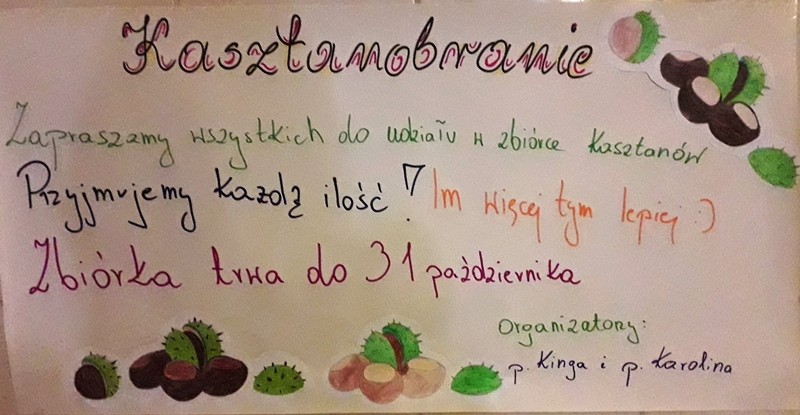 Kasztanobranie
Zapraszamy wszystkich do udziału w zbiórce Kasztanów
Przyjmujemy każdą ilość! Im więcej tym lepiej :)
Zbiórka trwa do 31 października
Organizatorzy:
p. Kinga i p. Karolina